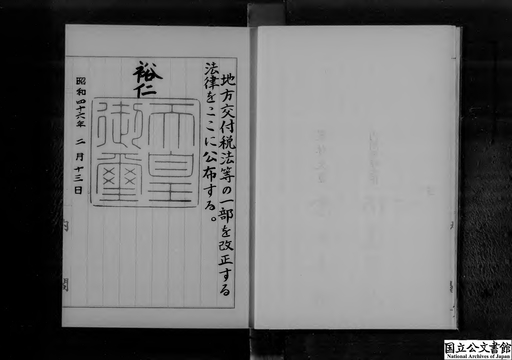 地方交付税法等の一部を改正する
法律をここに公布する。
裕仁
天皇
御璽
昭和四十六年 二月十三日
内閣
国立公文書館
National Archives of Japan